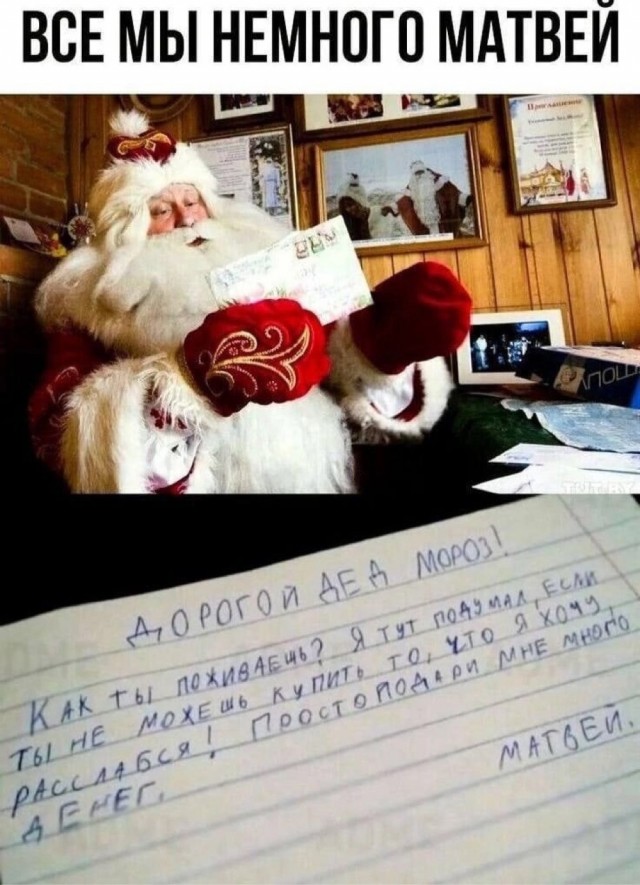 ВСЕ МЫ НЕМНОГО МАТВЕЙ
Приглашение
ПОШ
ДОРОГОЙ ДЕД МОРОЗ!
КАК ТЫ ПОЖИВАЕШЬ? Я ТУТ ПОДУМАЛ, ЕСЛИ
ТЫ НЕ МОЖЕШЬ КУПИТЬ ТО, ЧТО Я ХОЧУ,
РАССЛАБСЯ! ПРОСТО ПОДАРИ МНЕ МНОГО
ДЕНЕГ.
МАТВЕЙ.